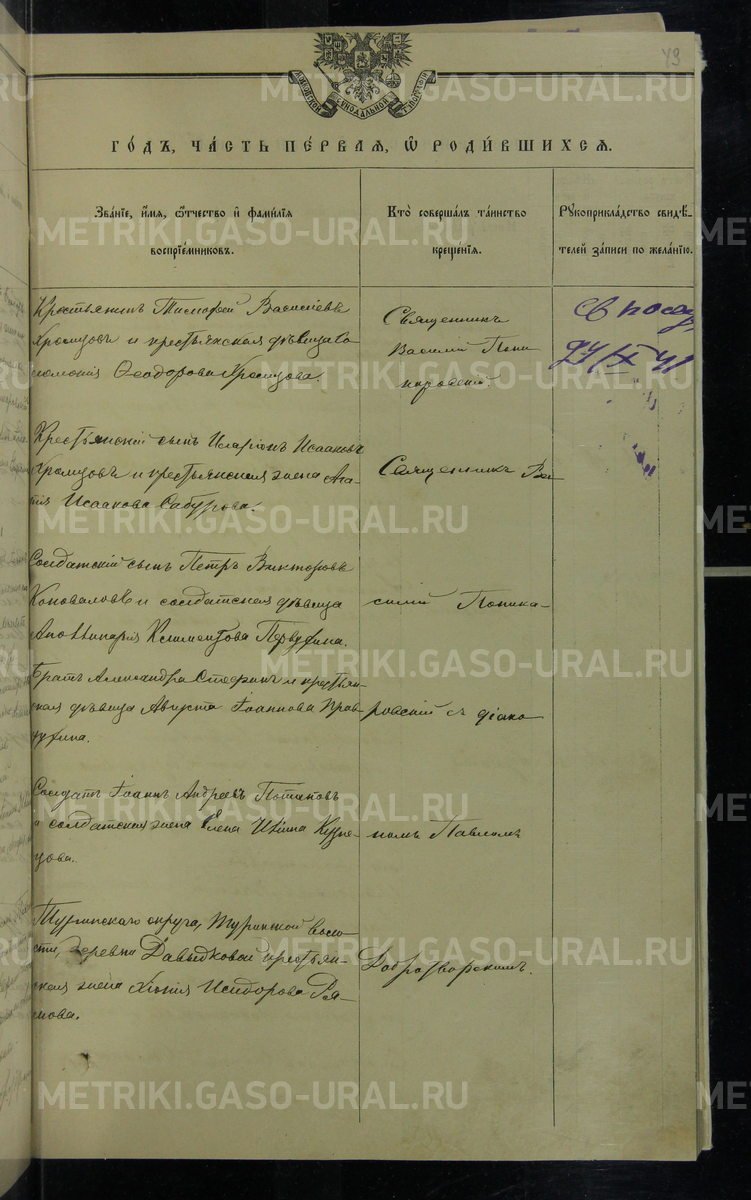 43
ГОДЪ, ЧАСТЬ ПЕРВАЯ, Ѡ РОДИВШИХСЯ.
Званіе, имя, ѿчество и фамилія
воспріемниковъ.
Кто совершалъ таинство
крещенія.
Рукоприкладство свидѣ-
телей записи по желанію.
Крестьянинъ Тимофей Васильевъ
Храмцовъ и крестьянская дѣвица Со
ломонія Ѳеодорова Храмцова.
Священникъ
Василій Пони
каровскій.
Крестьянскій сынъ Иларіонъ Исааковъ
Храмцовъ и крестьянская жена Ага
пія Исаакова Сабурова.
Священникъ Ва-
Солдатскій сынъ Петръ Викторовъ
Коноваловъ и солдатская дѣвица
Аполлинарія Климентова Первухина.
силій Поника-
Братъ Александра Стефанъ и крестьян-
ская дѣвица Августа Іоаннова
ровскій съ діако
Солдатъ Іоаннъ Андреевъ Потаповъ
и солдатская жена Елена Кузне
цова.
номъ Павломъ
Туринскаго округа, Туринской воло
сти, деревни Давыдковой крестьян-
ская жена Хіонія Исидорова
Добротворскимъ.
METRIKI.GASO-URAL.RU